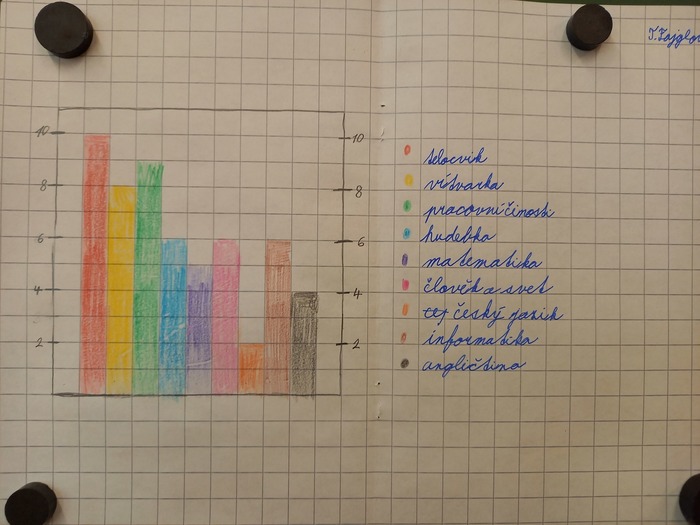 10
8
6
4
2
10
8
6
4
2
telocvik
vítvarka
pracovní činosti
hudebka
matematika
človek a svet
český jazik
informatika
angličtina